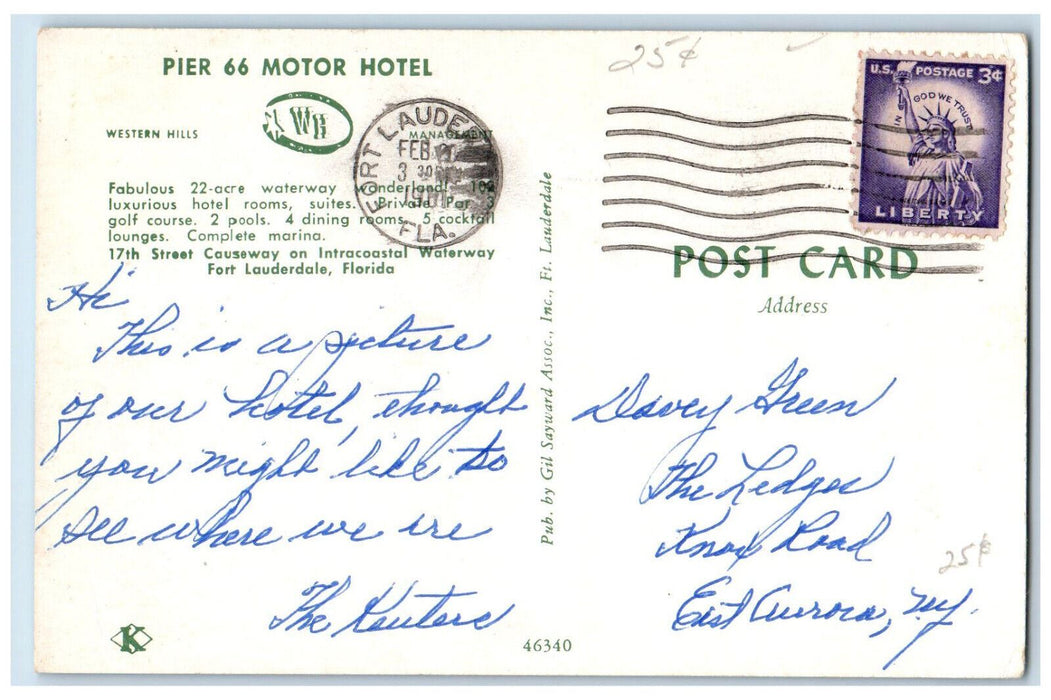 PIER 66 MOTOR HOTEL
WESTERN HILLS
WH
MANAGEMENT
Fabulous 22-acre waterway wonderland! 102
luxurious hotel rooms, suites. Private Par 3
golf course. 2 pools. 4 dining rooms. 5 cocktail
lounges. Complete marina.
17th Street Causeway on Intracoastal Waterway
Fort Lauderdale, Florida
FORT LAUDE
FEB
3 30
FLA.
25¢
U.S. POSTAGE 3¢
IN GOD WE TRUST
LIBERTY
POST CARD
Address
Hi
This is a picture
of our hotel, thought
you might like to
see where we are
The
Pub. by Gil Sayward Assoc., Inc., Ft. Lauderdale
Davey Green
The Ledges
Knox Road
East Aurora, N.Y.
25¢
K
46340